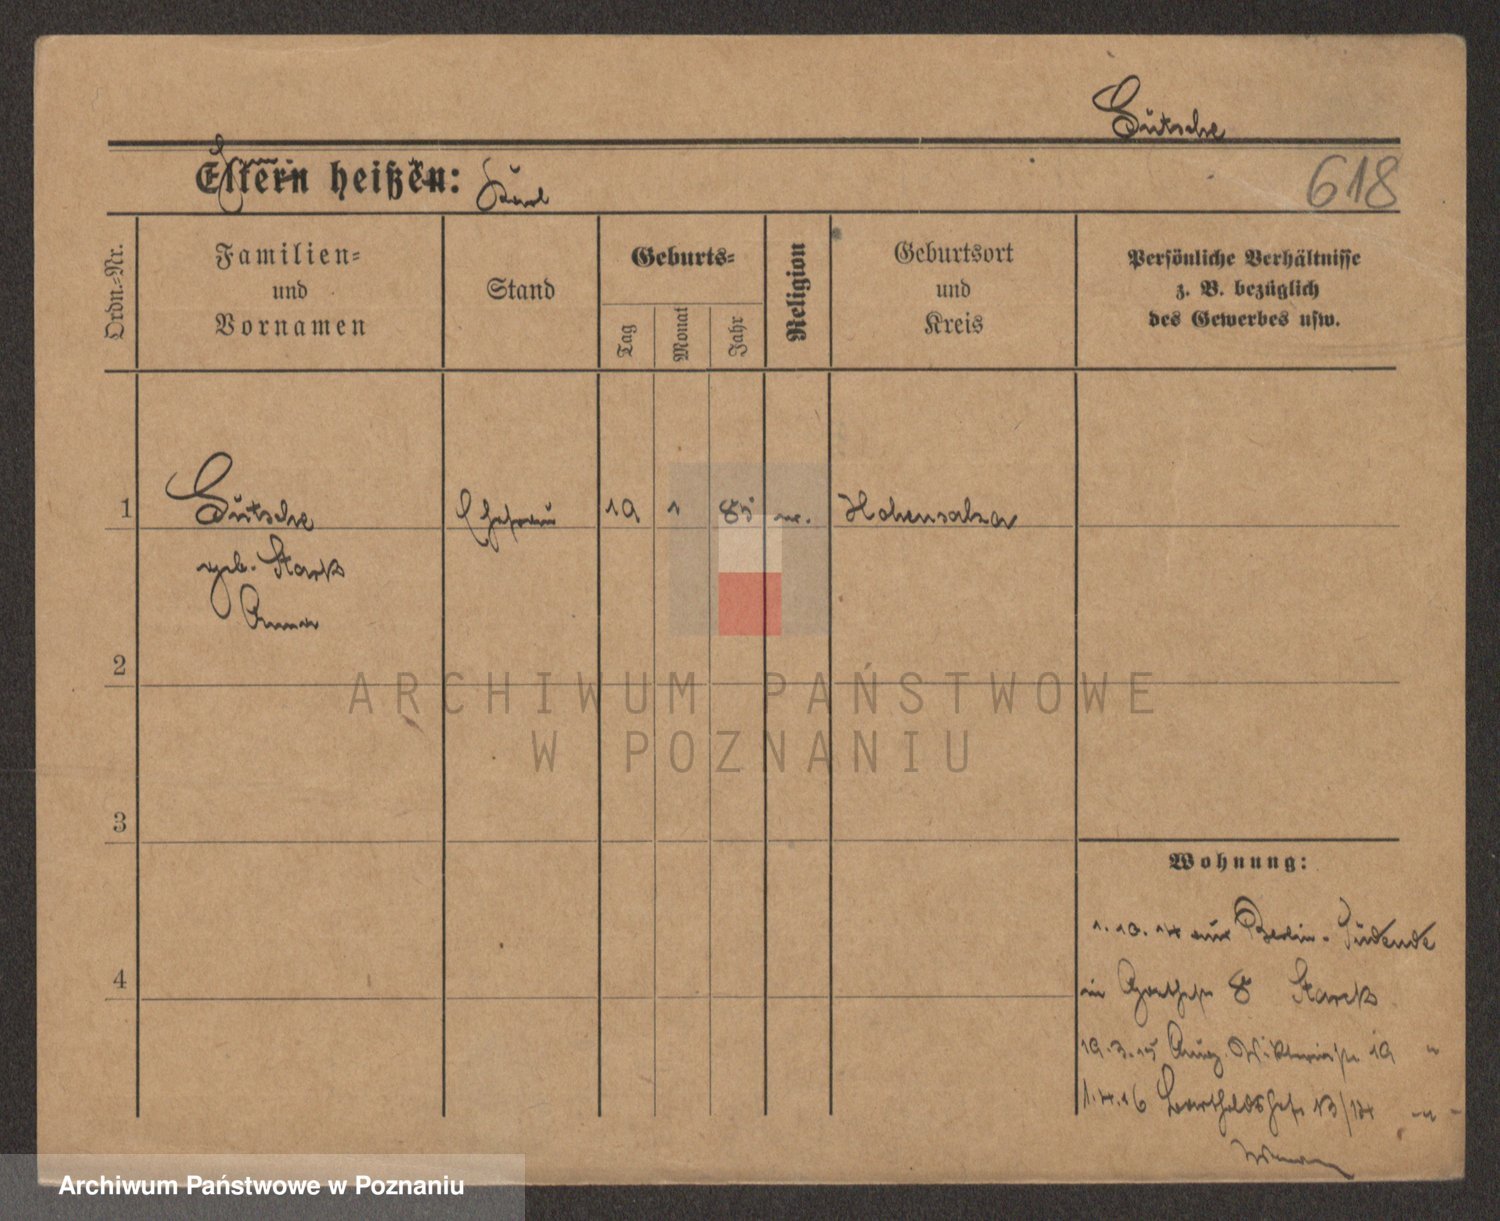 Gutsche
Eltern heißen: Karl
618
Ordn.-Nr.
Familien-
und
Vornamen
Stand
Geburts-
Tag
Monat
Jahr
Religion
Geburtsort
und
Kreis
Persönliche Verhältnisse
z. B. bezüglich
des Gewerbes usw.
1 Gutsche Ehefrau 19 1 85 ev. Hohensalza
geb. Stark
Anna
2
3
4
Wohnung:
1.10.14 aus Berlin-Südende
in Goethestr 8 Stark
19.3.15 Aug. Viktoriastr 19 "
1.4.16 13/14 - " -
ARCHIWUM PAŃSTWOWE
W POZNANIU
Archiwum Państwowe w Poznaniu